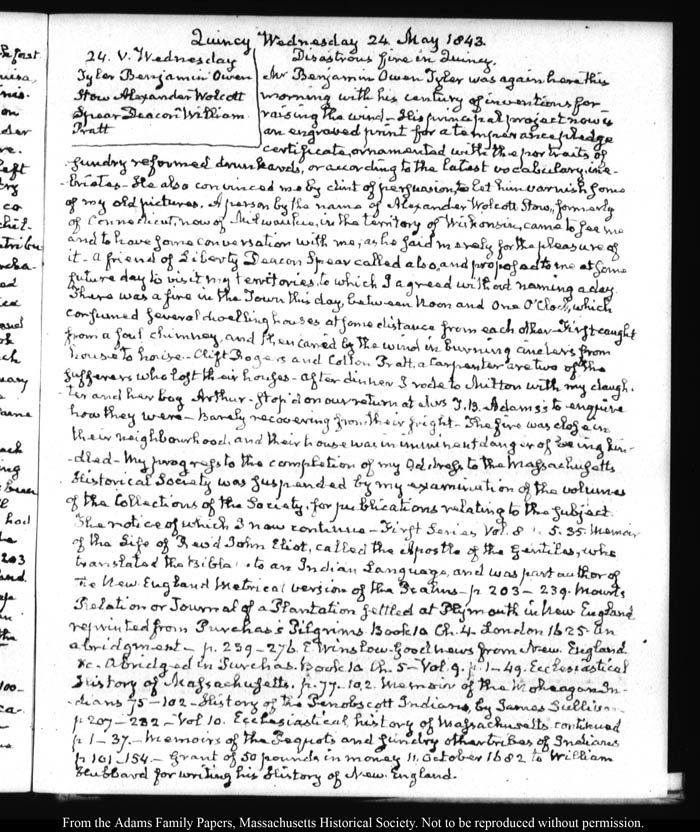 Quincy Wednesday 24. May 1843.
24. V. Wednesday
Tyler Benjamin Owen
Stow Alexander Wolcott
Spear Deacon William
Pratt
Disastrous fire in Quincy.
Mr Benjamin Owen Tyler was again here this
morning with his century of inventions for
raising the wind— His principal project now is
an engraved print for a temperance pledge
certificate, ornamented with the portraits of
sundry reformed drunkards, or according to the latest vocabulary, ine-
briates— He also convinced me by dint of persuasion, to let him varnish some
of my old pictures. A person by the name of Alexander Wolcott Stow, formerly
of Connecticut, now of Milwaukie, in the territory of Wiskonsin, came to see me
and to have some conversation with me; as he said merely for the pleasure of
it— A friend of Liberty Deacon Spear called also, and proposed to me at some
future day to visit my territories, to which I agreed without naming a day.
There was a fire in the Town this day, between Noon and One O'Clock, which
consumed several dwelling houses at some distance from each other— First caught
from a foul chimney, and then carried by the wind in burning cinders from
house to house— Clift Rogers and Colton Pratt, a carpenter are two of the
sufferers who lost their houses— After dinner I rode to Milton with my daugh-
ter and her boy Arthur— stop'd on our return at Mrs T. B. Adams's to enquire
how they were— Barely recovering from their fright— The fire was close in
their neighbourhood, and their house was in imminent danger of being kin-
dled— My progress to the completion of my Address to the Massachusetts
Historical Society was suspended by my examination of the volumes
of the Collections of the Society, for publications relating to the subject.
The notice of which I now continue— First Series Vol. 8 5–35. Memoir
of the Life of Revd John Eliot, called the Apostle of the Gentiles, who
translated the Bible to an Indian Language, and was part author of
the New England Metrical version of the Psalms— p 203–239. Mourts
Relation or Journal of a Plantation settled at Plymouth in New England
reprinted from Purchas's Pilgrims Book 10 Ch. 4. London 1625. An
abridgment— p. 239–276. E. Winslow. Good news from New England
&c— Abridged in Purchas. Book 10 Ch. 5— Vol. 9. p 1–49. Ecclesiastical
History of Massachusetts. p. 77–102. Memoir of the Moheagan In-
dians 75–102— History of the Penobscott Indians, by James Sullivan
p 207–232— Vol 10. Ecclesiastical history of Massachusetts continued
p 1–37.— Memoirs of the Pequots and sundry other tribes of Indians
p 101–154.— Grant of 50 pounds in money 11. October 1682 to William
Hubbard for writing his History of New England.
From the Adams Family Papers, Massachusetts Historical Society. Not to be reproduced without permission.